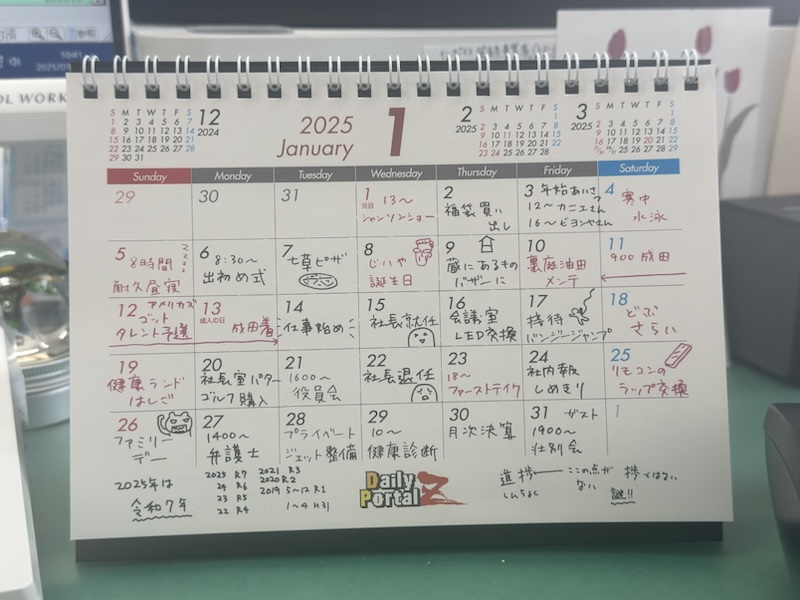 10:41
OL WORK
S M T W T F S
1 2 3 4 5 6 7
8 9 10 11 12 13 14
15 16 17 18 19 20 21
22 23 24 25 26 27 28
29 30 31
12
2024
2025
January
1
2
2025
S M T W T F S
1
2 3 4 5 6 7 8
9 10 11 12 13 14 15
16 17 18 19 20 21 22
23 24 25 26 27 28
3
2025
S M T W T F S
1
2 3 4 5 6 7 8
9 10 11 12 13 14 15
16 17 18 19 20 21 22
23/30 24/31 25 26 27 28 29
Sunday Monday Tuesday Wednesday Thursday Friday Saturday
29
30
31
1 元日 13〜
シャンソンショー
2
福袋買い
出し
3 年始あいさつ
12〜カニエさん
16〜ビヨンセさん
4
寒中
水泳
5
8時間
耐久昼寝
6 8:30〜
出初め式
7
七草ピザ
8
じいや
誕生日
9
蔵にあるもの
バザーに
10
裏庭油田
メンテ
11
900 成田
12 アメリカズ
ゴット
タレント予選
13
成人の日
成田着
14
仕事始め
15
社長就任
16
会議室
LED交換
17
接待
バンジージャンプ
18
どぶ
さらい
19
健康ランド
はしご
20
社長室パター
ゴルフ購入
21
1600〜
役員会
22
社長退任
23
18〜
ファーストテイク
24
社内報
しめきり
25
リモコンの
ラップ交換
26
ファミリー
デー
27
1400〜
弁護士
28
プライベート
ジェット整備
29
10〜
健康診断
30
月次決算
31 ゲスト
1900〜
壮別会
1
2025年は
令和7年
2025 R7
24 R6
23 R5
22 R4
2021 R3
2020 R2
2019 5〜12 R1
1〜4 H31
Daily
Portal Z
進捗
しんちょく
ここの点が
ない
捗ではない
謎!!